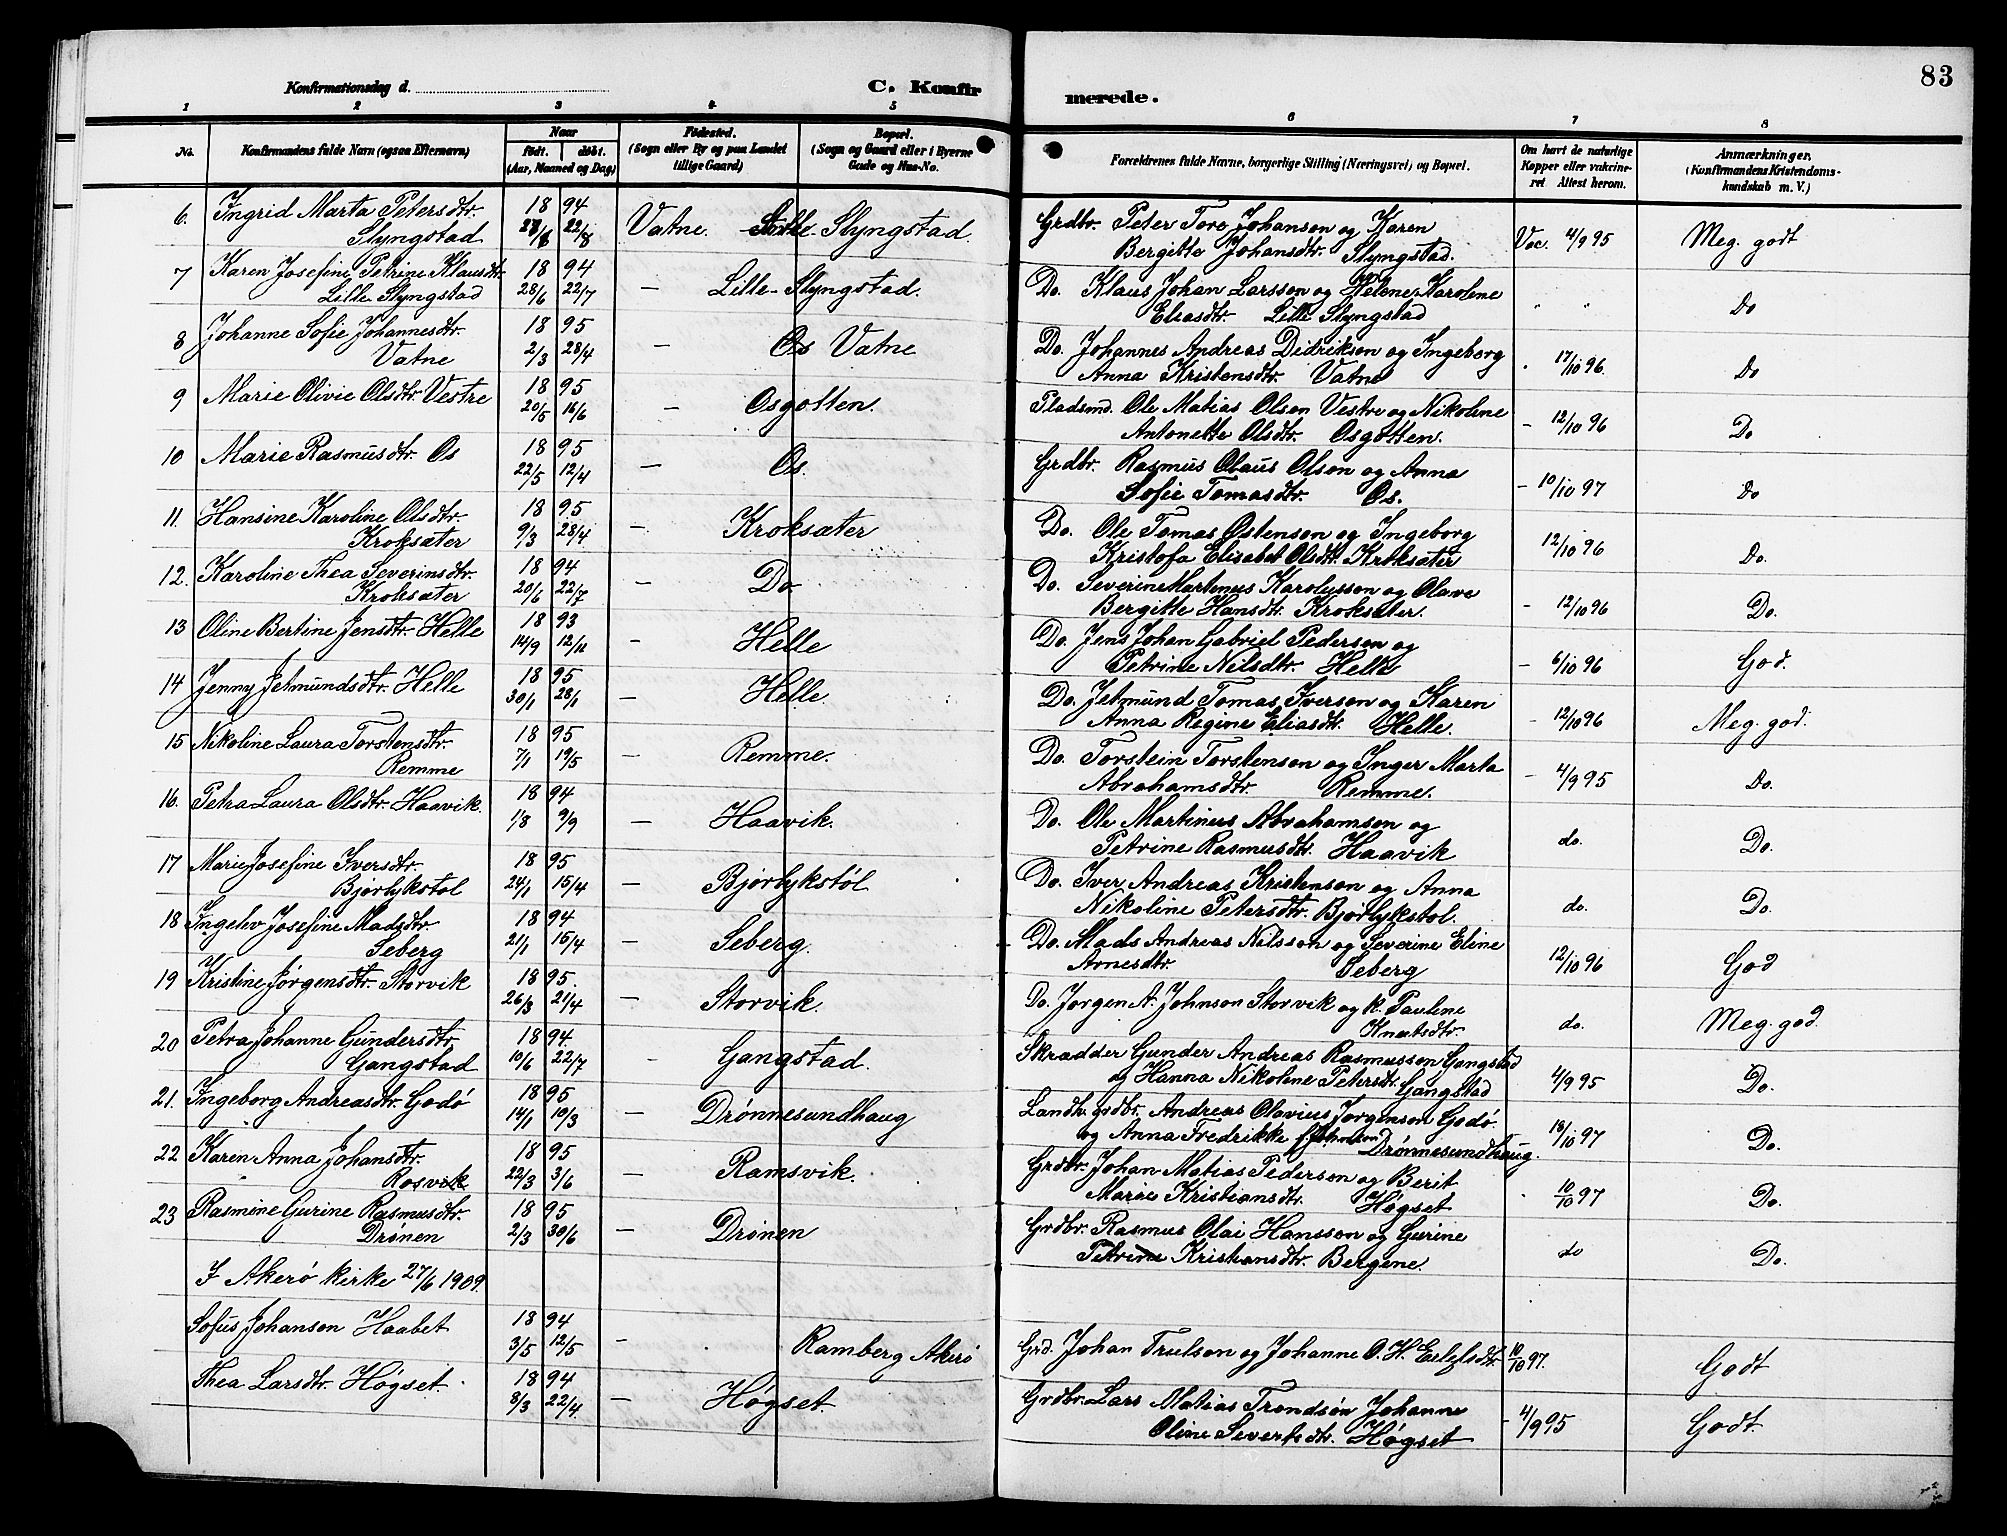 83
Konfirmationsdag d. C. Konfirmerede.
1 2 3 4 5 6 7 8
No. Konfirmandens fulde Navn (ogsaa Efternavn) Naar født. døbt. (Aar, Maaned og Dag) Fødested. (Sogn eller By og paa Landet tillige Gaard) Bopæl. (Sogn og Gaard eller i Byerne Gade og Hus-No. Forældrenes fulde Navne, borgerlige Stilling (Næringsvei) og Bopæl. Om havt de naturlige Kopper eller vakcineret Attest herom. Anmærkninger. (Konfirmandens Kristendomskundskab m. V.)
6. Ingrid Marta Petersdtr. 18 94 Vatne. Slyngstad. Grdbr. Peter Tore Johanson og Karen Vac. 4/9 95 Meg. godt
Slyngstad 22/8 Bergitte Johansdtr. Slyngstad.
7 Karen Josefine Petrine Klausdtr 18 94 — Lille-Slyngstad. Do. Klaus Johan Larsson og Helene Karoline " " Do
Lille Slyngstad 28/6 22/7 Eliasdtr. Lille Slyngstad
8 Johanne Sofie Johannesdtr. 18 95 — Os Vatne Do. Johannes Andreas Didrikson og Ingeborg 17/10 96. Do
Vatne 2/3 28/4 Anna Kristensdtr. Vatne
9 Marie Olivie Olsdtr. Vestre 18 95 — Osgotten. Pladsmd. Ole Matias Olson Vestre og Nikoline – 12/10 96 Do
20/5 16/6 Antonette Olsdtr. Osgotten.
10 Marie Rasmusdtr. Os 18 95 — Os. Grdbr. Rasmus Olaus Olson og Anna – 10/10 97 Do
22/5 12/4 Sofie Tomasdtr. Os.
11. Hansine Karoline Olsdtr. 18 95 — Kroksæter Do. Ole Tomas Østenson og Ingeborg 12/10 96 Do.
Kroksæter 9/3 28/4 Kristofa Elisabet Olsdtr. Kroksæter
12. Karoline Thea Severinsdtr. 18 94 — Do. Do. Severine Martinus Karolusson og Olave – 12/10 96 Do.
Kroksæter 20/6 22/7 Bergitte Hansdtr. Kroksæter.
13 Oline Bertine Jensdtr. Helle 18 93 — Helle Do. Jens Johan Gabriel Pederson og – 6/10 96 God.
14/9 12/11 Petrine Nilsdtr. Helle
14 Jenny Jetmundsdtr. Helle 18 95 — Helle. Do. Jetmund Tomas Iverson og Karen – 12/10 96 Meg. god.
30/1 28/1 Anna Regine Eliasdtr. Helle.
15 Nikoline Laura Torstensdtr. 18 95 — Remme. Do. Torstein Torstenson og Inger Marta – 4/9 95 Do.
Remme 7/1 19/5 Abrahamsdtr. Remme.
16. Petra Laura Olsdtr. Haavik. 18 94 — Haavik. Do. Ole Martinus Abrahamson og do. Do.
1/8 9/9 Petrine Rasmusdtr. Haavik
17 Marie Josefine Iversdtr. 18 95 — Bjørlykstøl Do. Iver Andreas Kristenson og Anna do. Do.
Bjørlykstøl 24/1 15/4 Nikoline Petersdtr. Bjørlykstøl.
18 Ingelev Josefine Madsdtr. 18 94 — Seberg. Do. Mads Andreas Nilsson og Severine Eline 12/10 96 God
Seberg 21/1 15/4 Arnesdtr. Seberg
19 Kristine Jørgensdtr. Storvik 18 95. — Storvik. Do. Jørgen A. Johnson Storvik og K. Pauline do. Meg. god.
26/3 21/4 Knutsdtr.
20 Petra Johanne Gundersdtr. 18 94. — Gangstad. Skrædder Gunder Andreas Rasmusson Gangstad 4/9 95 Do.
Gangstad 10/6 22/7 og Hanna Nikoline Petersdtr. Gangstad
21. Ingeborg Andreasdtr. Godø 18 95 — Drønnesundhaug Landh. grdbr. Andreas Olavius Jørgenson Godø. 18/10 97 Do.
14/1 10/3 og Anna Fredrikke f. Johnson Drønnesundhaug.
22 Karen Anna Johansdtr. 18 95 — Ramsvik. Grdbr. Johan Matias Pederson og Berit 10/10 97 Do.
Rosvik 22/3 3/6 Marie Kristiansdtr. Høgset
23 Rasmine Gurine Rasmusdtr. 18 95 — Drønen Grdbr. Rasmus Olai Hansson og Gurine do Do.
Drønen 2/3 30/6 Petrine Kristiansdtr. Bergene.
I Akerø kirke 27/6 1909.
Sofus Johanson Haabet 18 94 — Ramberg Akerø Grd. Johan Trulson og Johanne O. H. Eilefsdtr. 10/10 97. Godt
3/5 12/5
Thea Larsdtr. Høgset. 18 94 — Høgset. Grdbr. Lars Matias Trondsøn Johanne – 4/9 95 Godt.
8/3 22/4. Oline Severinsdtr. Høgset